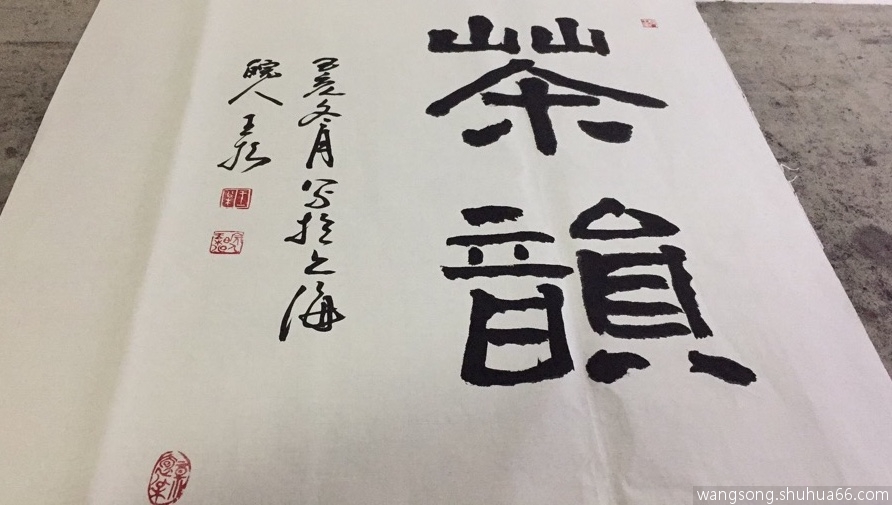 茶韻
己亥冬月写於上海
皖人王松
wangsong.shuhua66.com